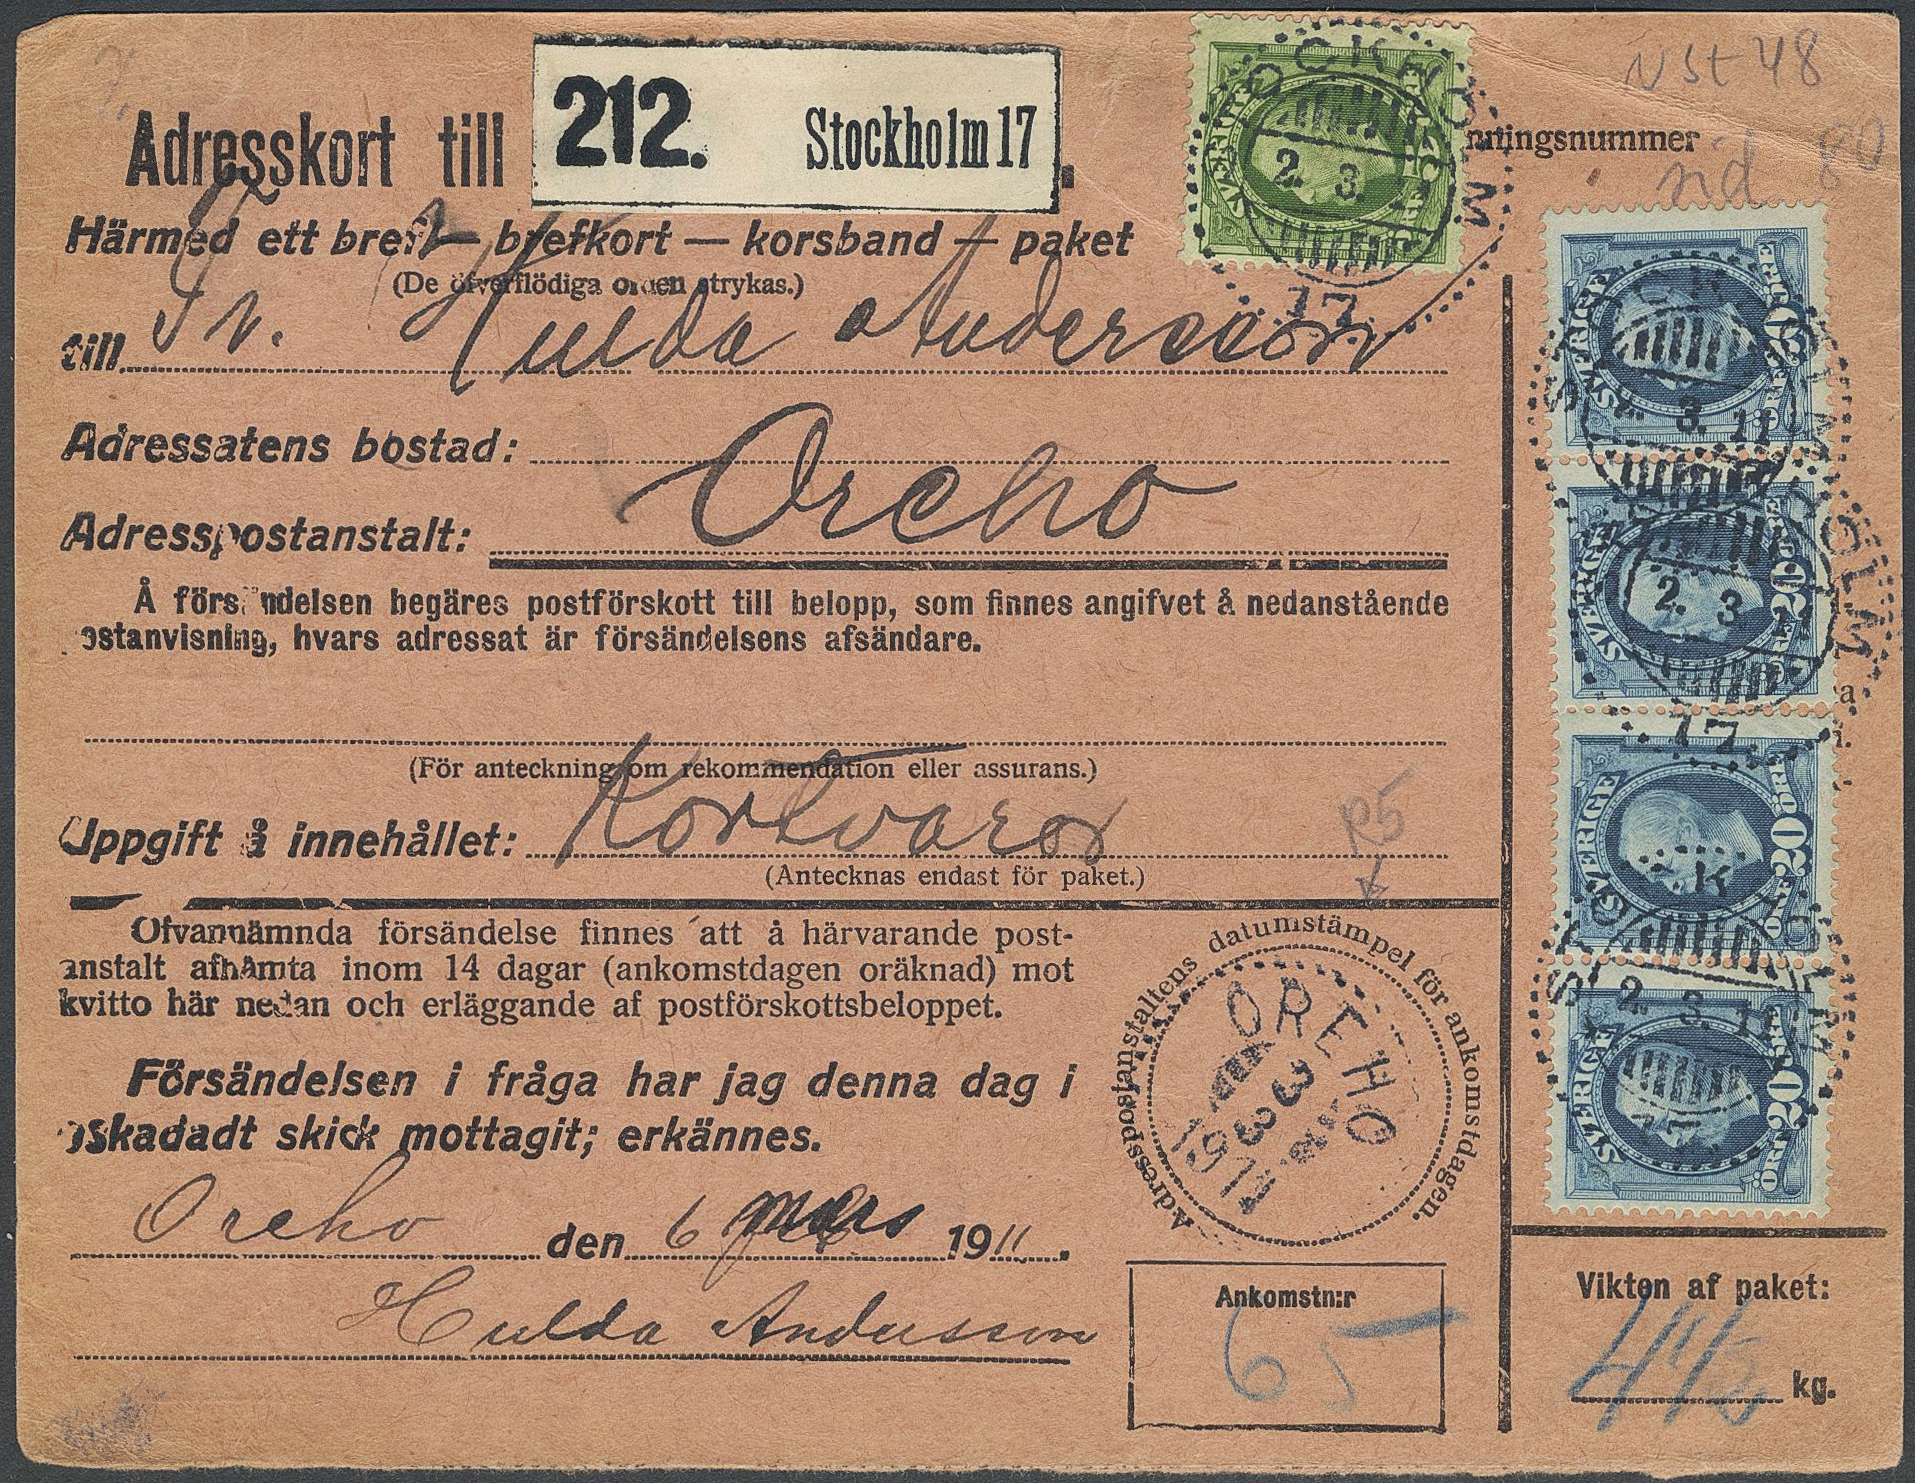 N St 48
Adresskort till
212. Stockholm 17
.
nningsnummer
sid 80
Härmed ett bref — brefkort — korsband — paket
(De öfverflödiga orden strykas.)
till Frk. Hulda Andersson
Adressatens bostad:
Adresspostanstalt: Oreho
Å försändelsen begäres postförskott till belopp, som finnes angifvet å nedanstående
ostanvisning, hvars adressat är försändelsens afsändare.
(För anteckning om rekommendation eller assurans.)
Uppgift å innehållet: Kortvaror
(Antecknas endast för paket.)
R5
Ofvannämnda försändelse finnes att å härvarande post-
anstalt afhämta inom 14 dagar (ankomstdagen oräknad) mot
kvitto här nedan och erläggande af postförskottsbeloppet.
Försändelsen i fråga har jag denna dag i
oskadadt skick mottagit; erkännes.
Oreho den 6 mars 1911.
Hulda Andersson
Adresspostanstaltens datumstämpel för ankomstdagen.
OREHO
3 3
1911
Ankomstn:r
65
Vikten af paket:
4 1/2 kg.
STOCKHOLM
2. 3. 11
17.
SVERIGE
ÖRE 5 ÖRE
STOCKHOLM
2. 3. 11
SVERIGE
ÖRE 20 ÖRE
STOCKHOLM
2. 3. 11
17.
SVERIGE
ÖRE 20 ÖRE
STOCKHOLM
2. 3. 11
17.
SVERIGE
ÖRE 20 ÖRE
SVERIGE
ÖRE 20 ÖRE